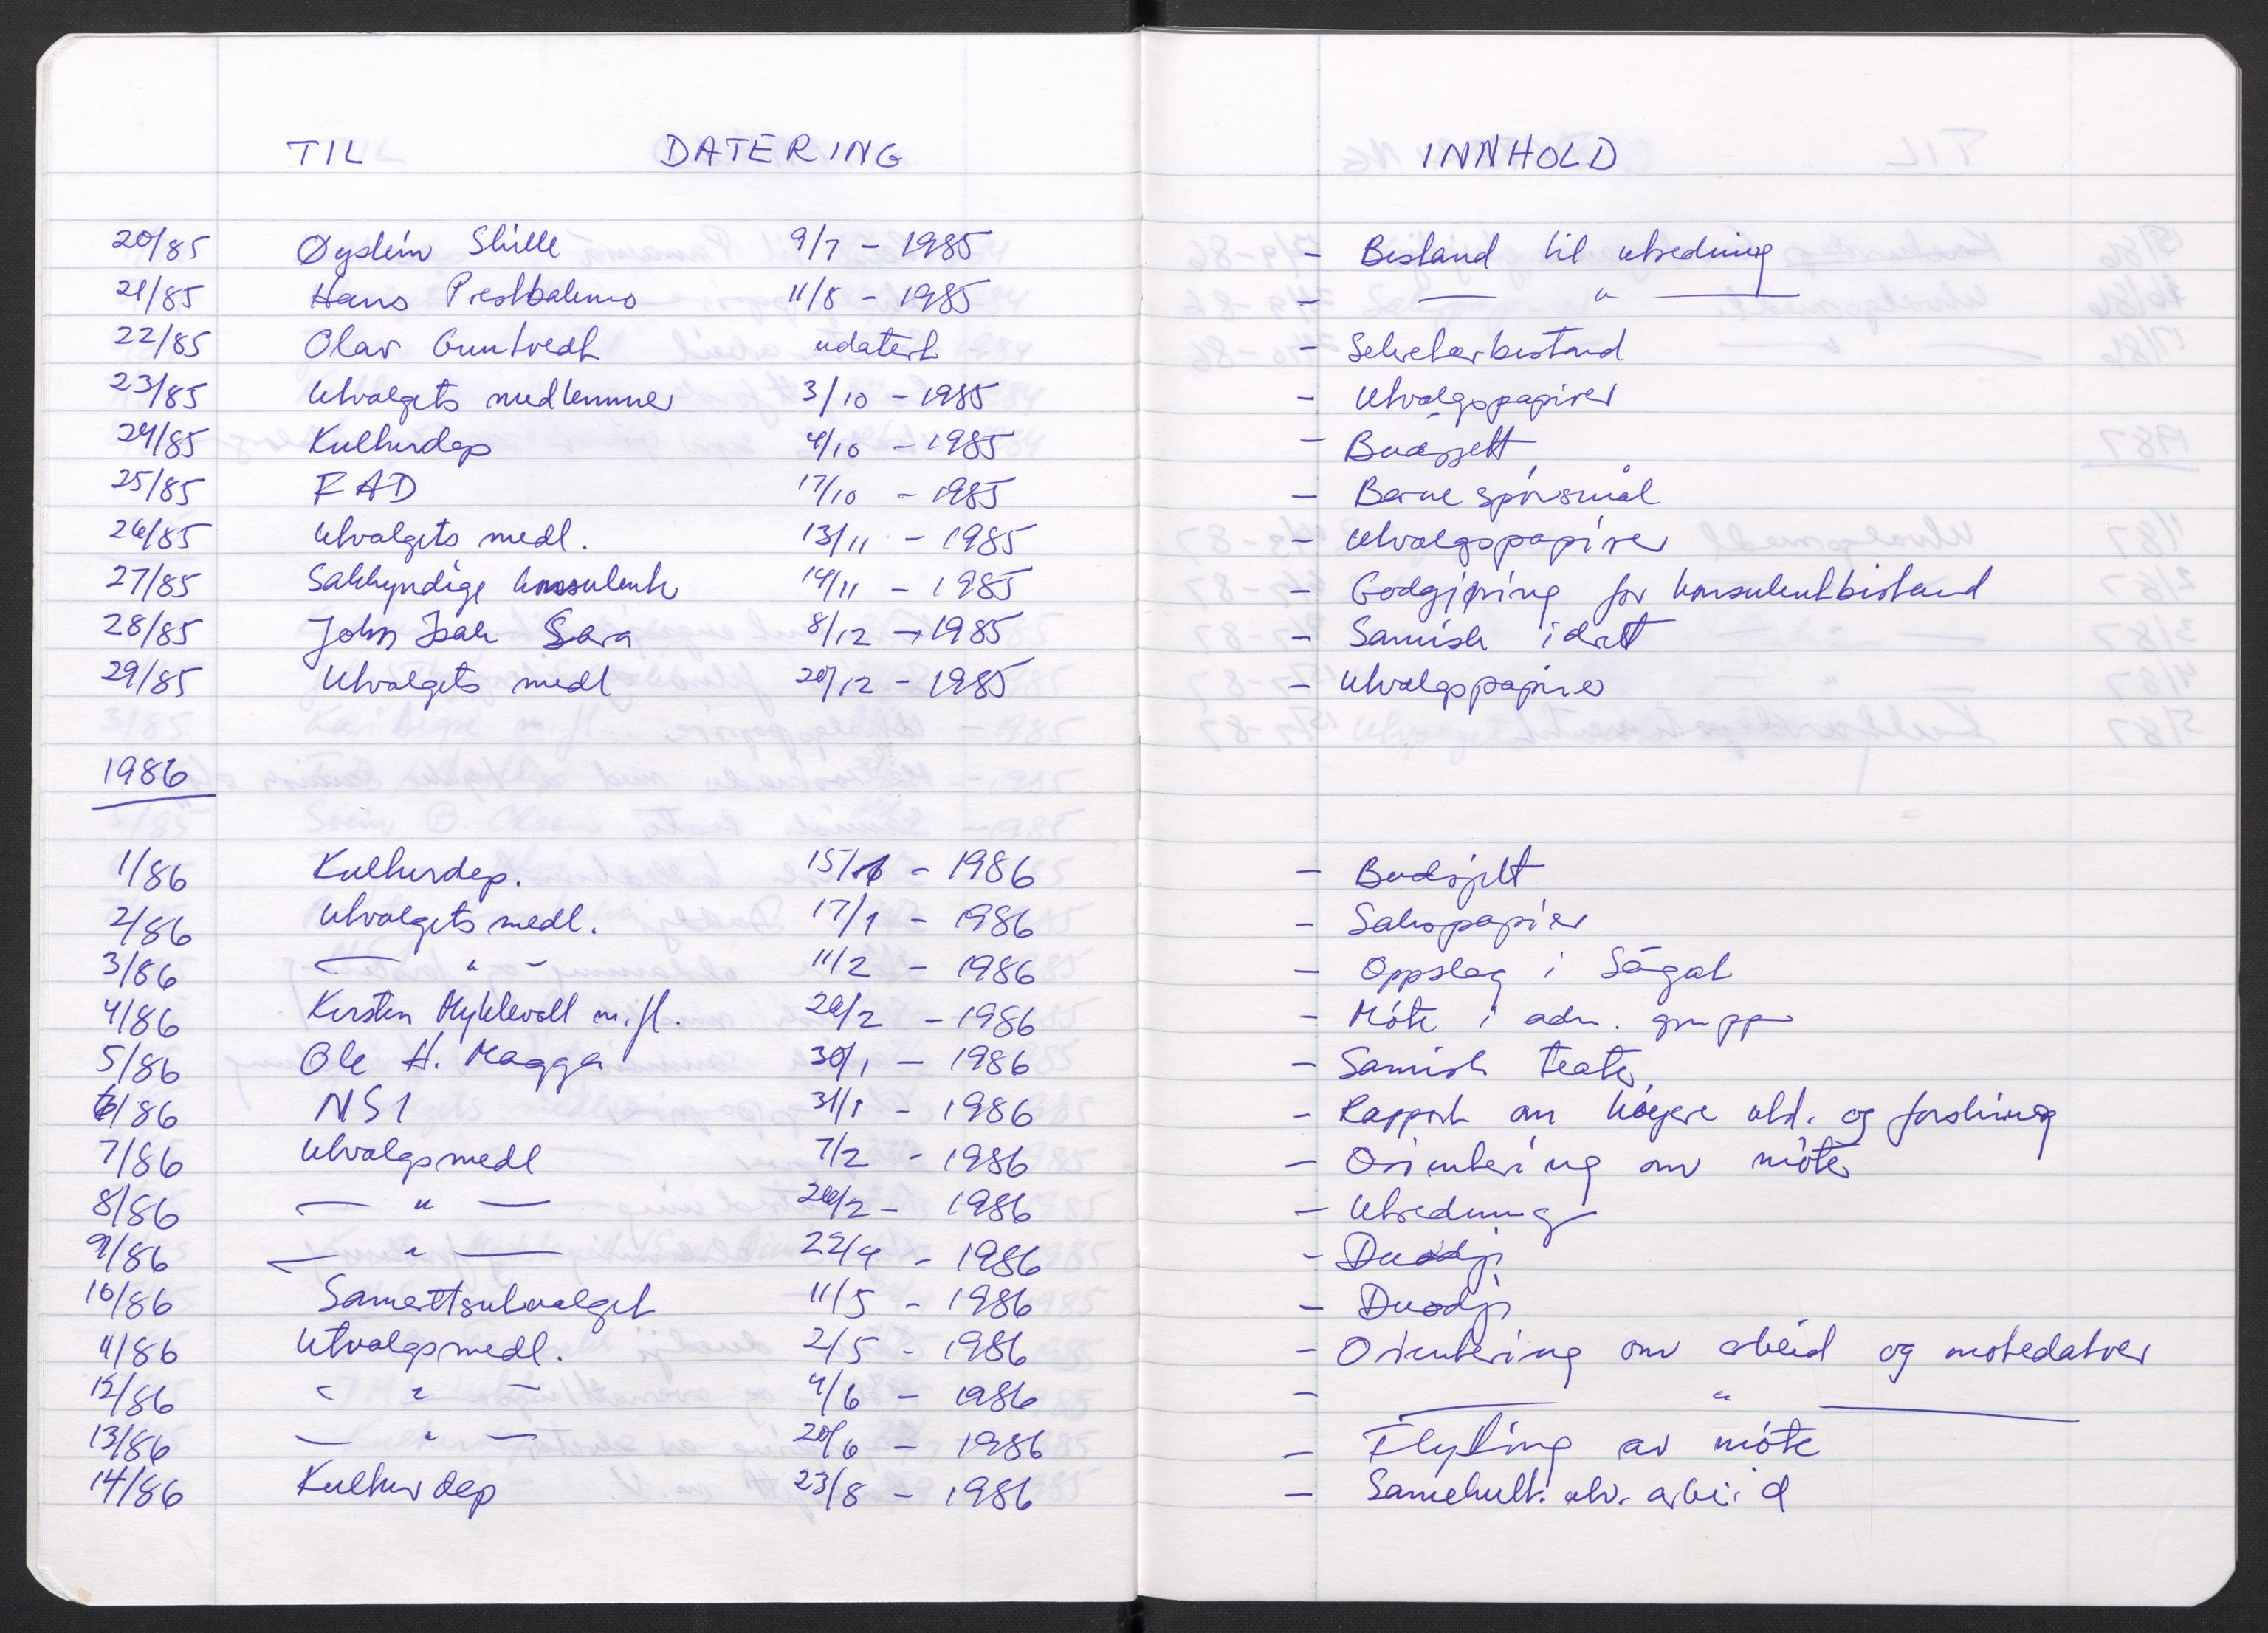 TIL DATERING INNHOLD
20/85 Øystein Skille 9/7 - 1985 - Bistand til utredning
21/85 Hans Prestbakmo 11/8 - 1985 - — " —
22/85 Olav Guntvedt udatert - Sekretærbistand
23/85 Utvalgets medlemmer 3/10 - 1985 - Utvalgspapirer
24/85 Kulturdep 4/10 - 1985 - Budsjett
25/85 FAD 17/10 - 1985 - Barne spørsmål
26/85 Utvalgets medl. 13/11 - 1985 - Utvalgspapirer
27/85 Sakkyndige konsulenter 14/11 - 1985 - Godgjøring for konsulentbistand
28/85 John Isak Sara 8/12 - 1985 - Samisk idrett
29/85 Utvalgets medl 20/12 - 1985 - Utvalgspapirer
1986
1/86 Kulturdep. 15/1 - 1986 - Budsjett
2/86 Utvalgets medl. 17/1 - 1986 - Sakspapirer
3/86 — " - 11/2 - 1986 - Oppslag i Ságat
4/86 Kirsten Myklevoll m.fl. 2/2 - 1986 - Møte i adm. gruppe
5/86 Ole H. Magga 30/1 - 1986 - Samisk teater
6/86 NSI 31/1 - 1986 - Rapport om høyere utd. og forskning
7/86 Utvalgsmedl 7/2 - 1986 - Orientering om møter
8/86 — " — 26/2 - 1986 - Utredning
9/86 — " — 22/4 - 1986 - Duodji
10/86 Samerettsutvalget 11/5 - 1986 - Duodji
11/86 Utvalgsmedl. 2/5 - 1986 - Orientering om arbeid og møtedatoer
12/86 - " - 4/6 - 1986 - — " —
13/86 — " — 20/6 - 1986 - Flytting av møte
14/86 Kulturdep 23/8 - 1986 - Samekult. utv. arbeid